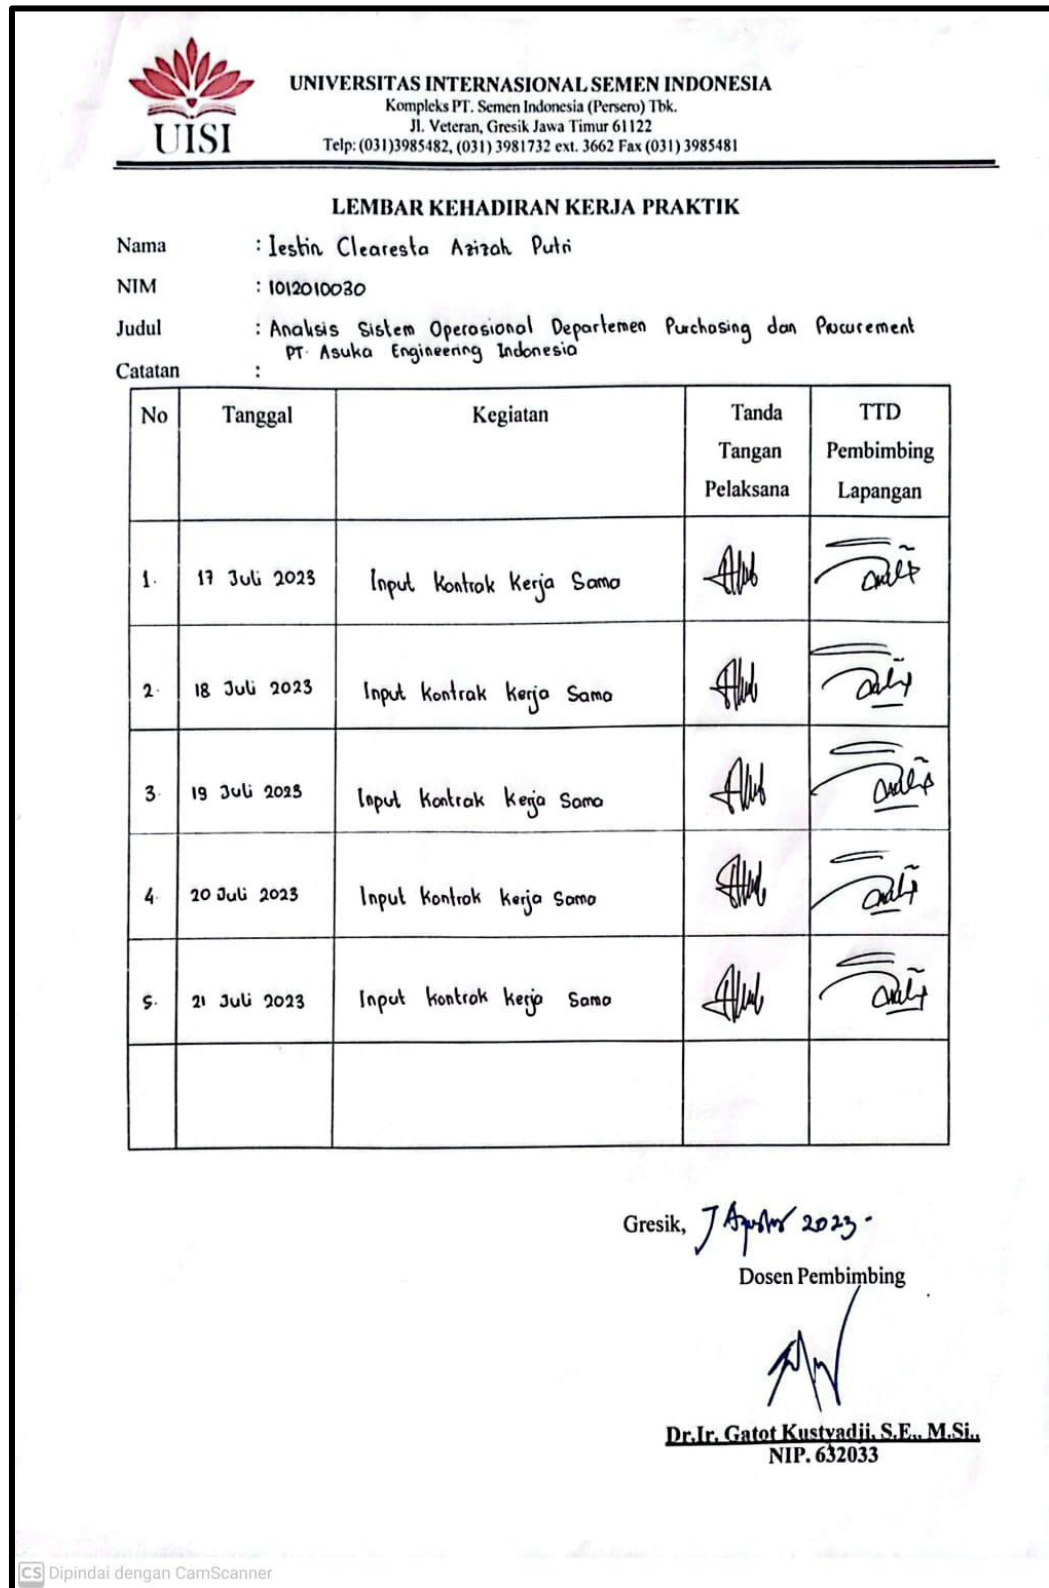 UISI
UNIVERSITAS INTERNASIONAL SEMEN INDONESIA
Kompleks PT. Semen Indonesia (Persero) Tbk.
Jl. Veteran, Gresik Jawa Timur 61122
Telp: (031)3985482, (031) 3981732 ext. 3662 Fax (031) 3985481
LEMBAR KEHADIRAN KERJA PRAKTIK
Nama : Iestin Clearesta Azizah Putri
NIM : 1012010030
Judul : Analisis Sistem Operasional Departemen Purchasing dan Procurement
PT. Asuka Engineering Indonesia
Catatan :
No Tanggal Kegiatan Tanda Tangan Pelaksana TTD Pembimbing Lapangan
1. 17 Juli 2023 Input Kontrak Kerja Sama
2. 18 Juli 2023 Input Kontrak Kerja Sama
3. 19 Juli 2023 Input Kontrak Kerja Sama
4. 20 Juli 2023 Input Kontrak Kerja Sama
5. 21 Juli 2023 Input Kontrak Kerja Sama
Gresik, 7 Agustus 2023.
Dosen Pembimbing
Dr.Ir. Gatot Kustyadji, S.E., M.Si.,
NIP. 632033
CS Dipindai dengan CamScanner